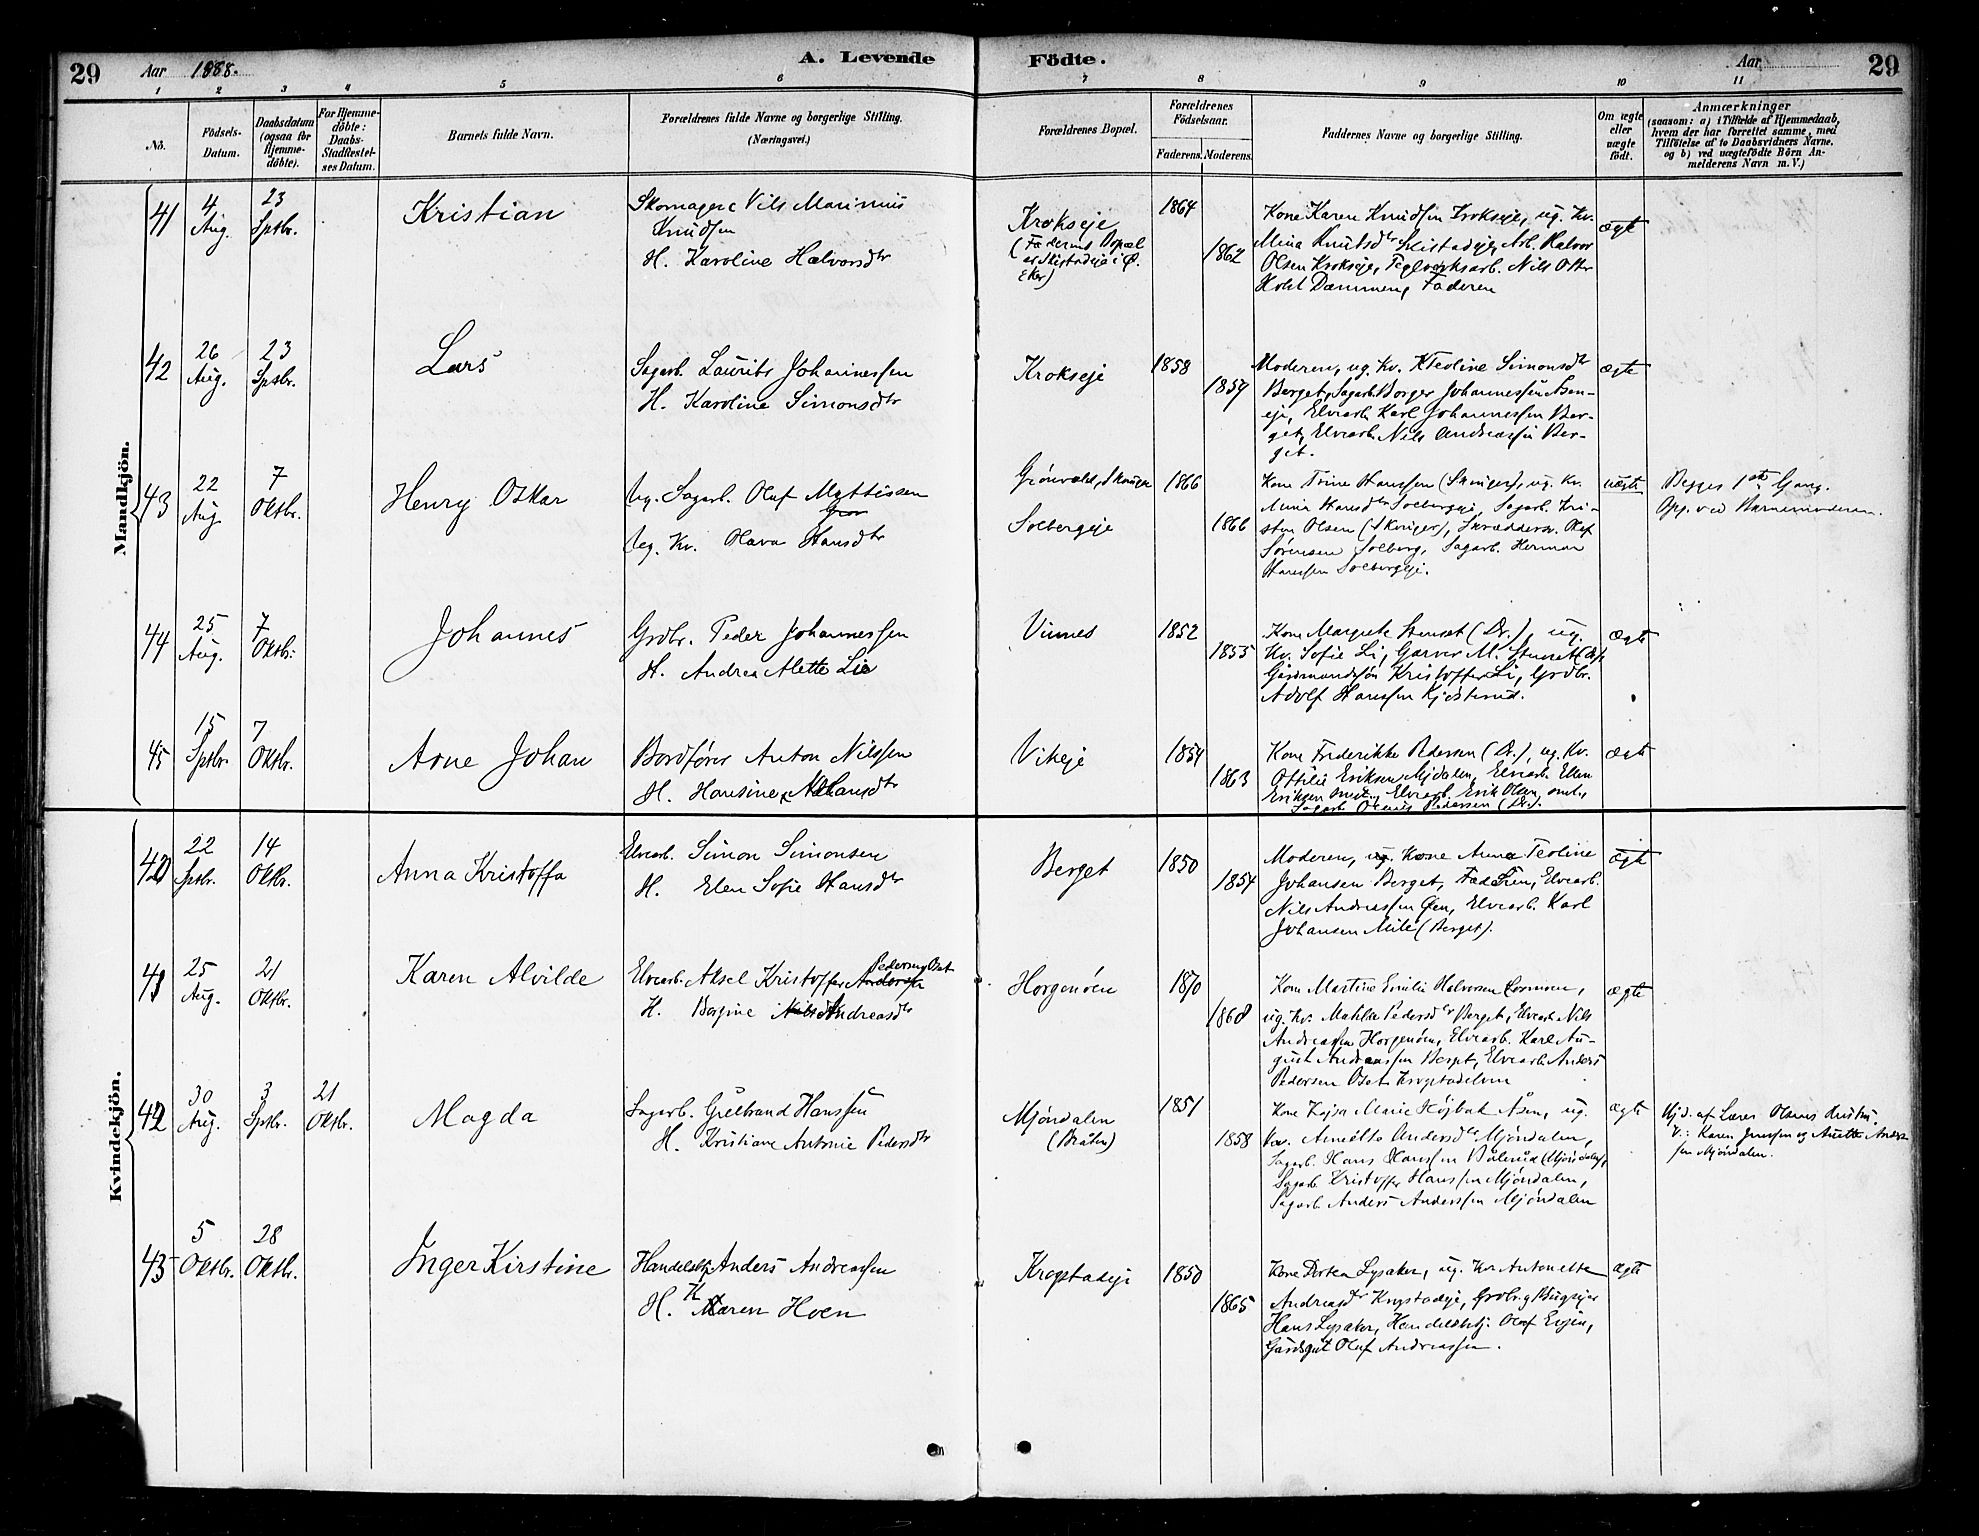 29 Aar 1888. A. Levende Födte. Aar 29
1 2 3 4 5 6 7 8 9 10 11
No. Födsels-Datum. Daabsdatum (ogsaa for Hjemme-döbte). For Hjemme-döbte: Daabs-Stadfæstel-ses Datum. Barnets fulde Navn. Forældrenes fulde Navne og borgerlige Stilling. (Næringsvei.) Forældrenes Bopæl. Forældrenes Födselsaar. Faderens. Moderens. Faddernes Navne og borgerlige Stilling. Om ægte eller uægte födt. Anmærkninger (saasom: a) i Tilfælde af Hjemmedaab, hvem der har forrettet samme, med Tilföielse af to Daabsvidners Navne, og b) ved uægtefödte Börn An-melderens Navn m. V.)
Mandkjön.
41 4 Aug. 23 Sptbr. Kristian
Skomager Nils Marinius
Knudsen
H. Karoline Halvorsdtr
Krokseje
(Faderens Bopæl
er Skistadeje i Ø.
Eker)
1864 1862
Kone Karen Knudsen Krokseje, ug. Kv.
Mina Knutsdtr Skistadeje, Arb. Halvor
Olsen Krokseje, Teglverksarb. Nils Otto
Holst Dæmmen, Faderen
ægte
42 26 Aug. 23 Sptbr. Lars
Sagarb. Laurits Johannessen
H. Karoline Simonsdtr
Krokseje
1858 1859
Moderen, ug. Kv. Kteoline Simonsdtr
Berget, Sagarb. Borger Johannessen Aasen-
eje, Elvearb. Karl Johannessen Ber-
get, Elvearb. Nils Andreassen Ber-
get.
ægte
43 22 Aug 7 Oktbr. Henry Oskar
Ug. Sagarb. Oluf Mattissen
Ug. Kv. Olava Hansdtr
Grönvold, Skouger
Solbergeje
1866 1866
Kone Trine Hanssen (Skouger), ug. Kv.
Mina Hansdtr Solbergeje, Sagarb. Kri-
sten Olsen (Skouger), Skræddersv. Olaf
Sörensen Solberg, Sagarb. Herman
Hanssen Solbergeje.
uægte
Begges 1ste Gang.
Opg. ved Barnemoderen.
44 25 Aug. 7 Oktbr. Johannes
Grdbr. Peder Johannessen
H. Andrea Alette Lie
Vinnes
1852 1855
Kone Margrete Stenset (Dr.), ug.
Kv. Sofie Li, Garver M. Stenset (Dr.),
Gaardmandssön Kristoffer Li, Grdbr.
Adolf Hanssen Kjösterud.
ægte
45 15 Sptbr. 7 Oktbr. Arne Johan
Bordförer Anton Nilssen
H. Hansine Hansdtr
Vikeje
1854 1863
Kone Frederikke Pedersen (Dr.), ug. Kv.
Ottilie Eriksen Mjdalen, Elvearb. Ellen
Eriksen smst., Elvearb. Erik Olsen, smst.,
Sagarb. Pedersen (Dr.).
ægte
Kvindekjön.
40 22 Sptbr. 14 Oktbr. Anna Kristoffa
Elvearb. Simon Simonsen
H. Elen Sofie Hansdtr
Berget
1850 1854
Moderen, ug. Kone Anna Teoline
Johansen Berget, Faderen, Elvearb.
Nils Andreassen Öen, Elvearb. Karl
Johansen Mile (Berget).
ægte
41 25 Aug. 21 Oktbr. Karen Alvilde
Elvearb. Aksel Kristoffer Andersen Pedersen Oset
H. Bergine Nilsd Andreasdtr
Horgenöen
1870 1868
Kone Martine Emilie Halvorsen Evjemoen,
ug. Kv. Matilde Pedersdtr Berget, Elvearb Nils
Andreassen Horgenöen, Elvearb. Karl Au-
gust Andreassen Berget, Elvearb. Anders
Pedersen Oset Krogstadelven
ægte
42 30 Aug. 3 Sptbr. 21 Oktbr. Magda
Sagarb. Gulbrand Hanssen
H. Kristiane Antonie Pedersdtr
Mjöndalen
(Bråten)
1851 1858
Kone Kajsa Marie Höjbak Åsen, ug.
Kv. Anette Andersdtr Mjöndalen,
Sagarb. Hans Hanssen Bålerud (Mjöndalen),
Sagarb. Kristoffer Hanssen Mjöndalen,
Sagarb. Anders Anderssen Mjöndalen
ægte
Hjd. af Lærer Olsens Hustru.
V.: Karen Jenssen og Anette Anders-
sen Mjöndalen.
43 5 Oktbr. 28 Oktbr. Inger Kirstine
Handelsbtj. Anders Andreassen
H. Karen Hoen
Krogstadeje
1850 1865
Kone Dortea Lysaker, ug. Kv Antonette
Andreasdtr Krogstadeje, Grdbr. og Brugsejer
Hans Lysaker, Handelsbtj. Oluf Evjen,
Gårdsgut Oluf Andreassen.
ægte